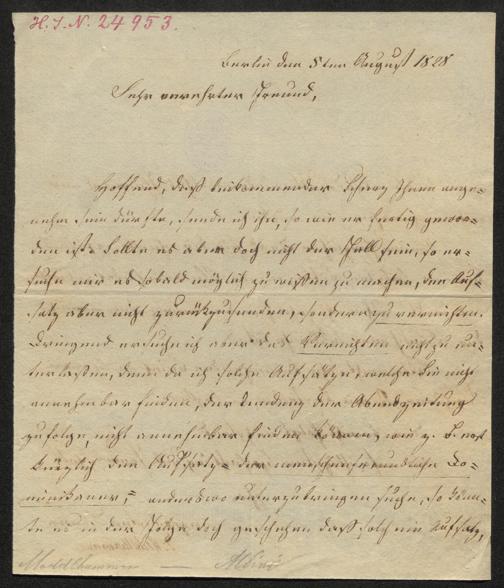 H. I. N. 24953.
Berlin den 5ten August 1828
Sehr verehrter Freund,
Hoffend, daß beikommender Scherz Ihnen ange-
nehm sein dürfte, sende ich ihn, so wie er fertig gewor-
den ist. Sollte es aber doch nicht der Fall sein, so er-
suche mir es sobald möglich zu wissen zu machen, den Auf-
satz aber nicht zurückzusenden, sondern zu vernichten.
Dringend ersuche ich aber das Vernichten nicht zu un-
terlassen, denn da ich solche Aufsätze, welche Sie nicht
annehmbar finden, der Tendenz der Abendzeitung
zufolge, nicht annehmbar finden können, wie z. B.
kürzlich den Aufsatz = der menschenfreundliche Do-
minikaner, = anderswo unterzubringen suche, so könn-
te es in der Folge doch geschehen daß solch ein Aufsatz,